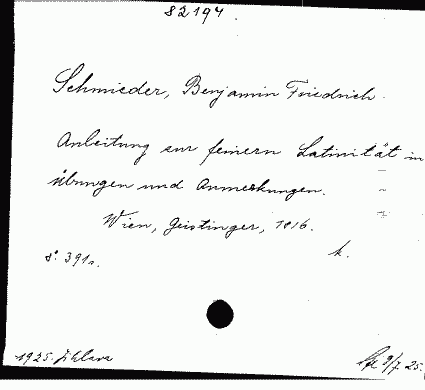 82194.
Schmieder, Benjamin Friedrich.
Anleitung zur feinern Latinität in
übungen und Anmerkungen.
Wien, Geistinger, 1816.
8° 391 s.
k.
1925. Jihlava
9/7. 25.